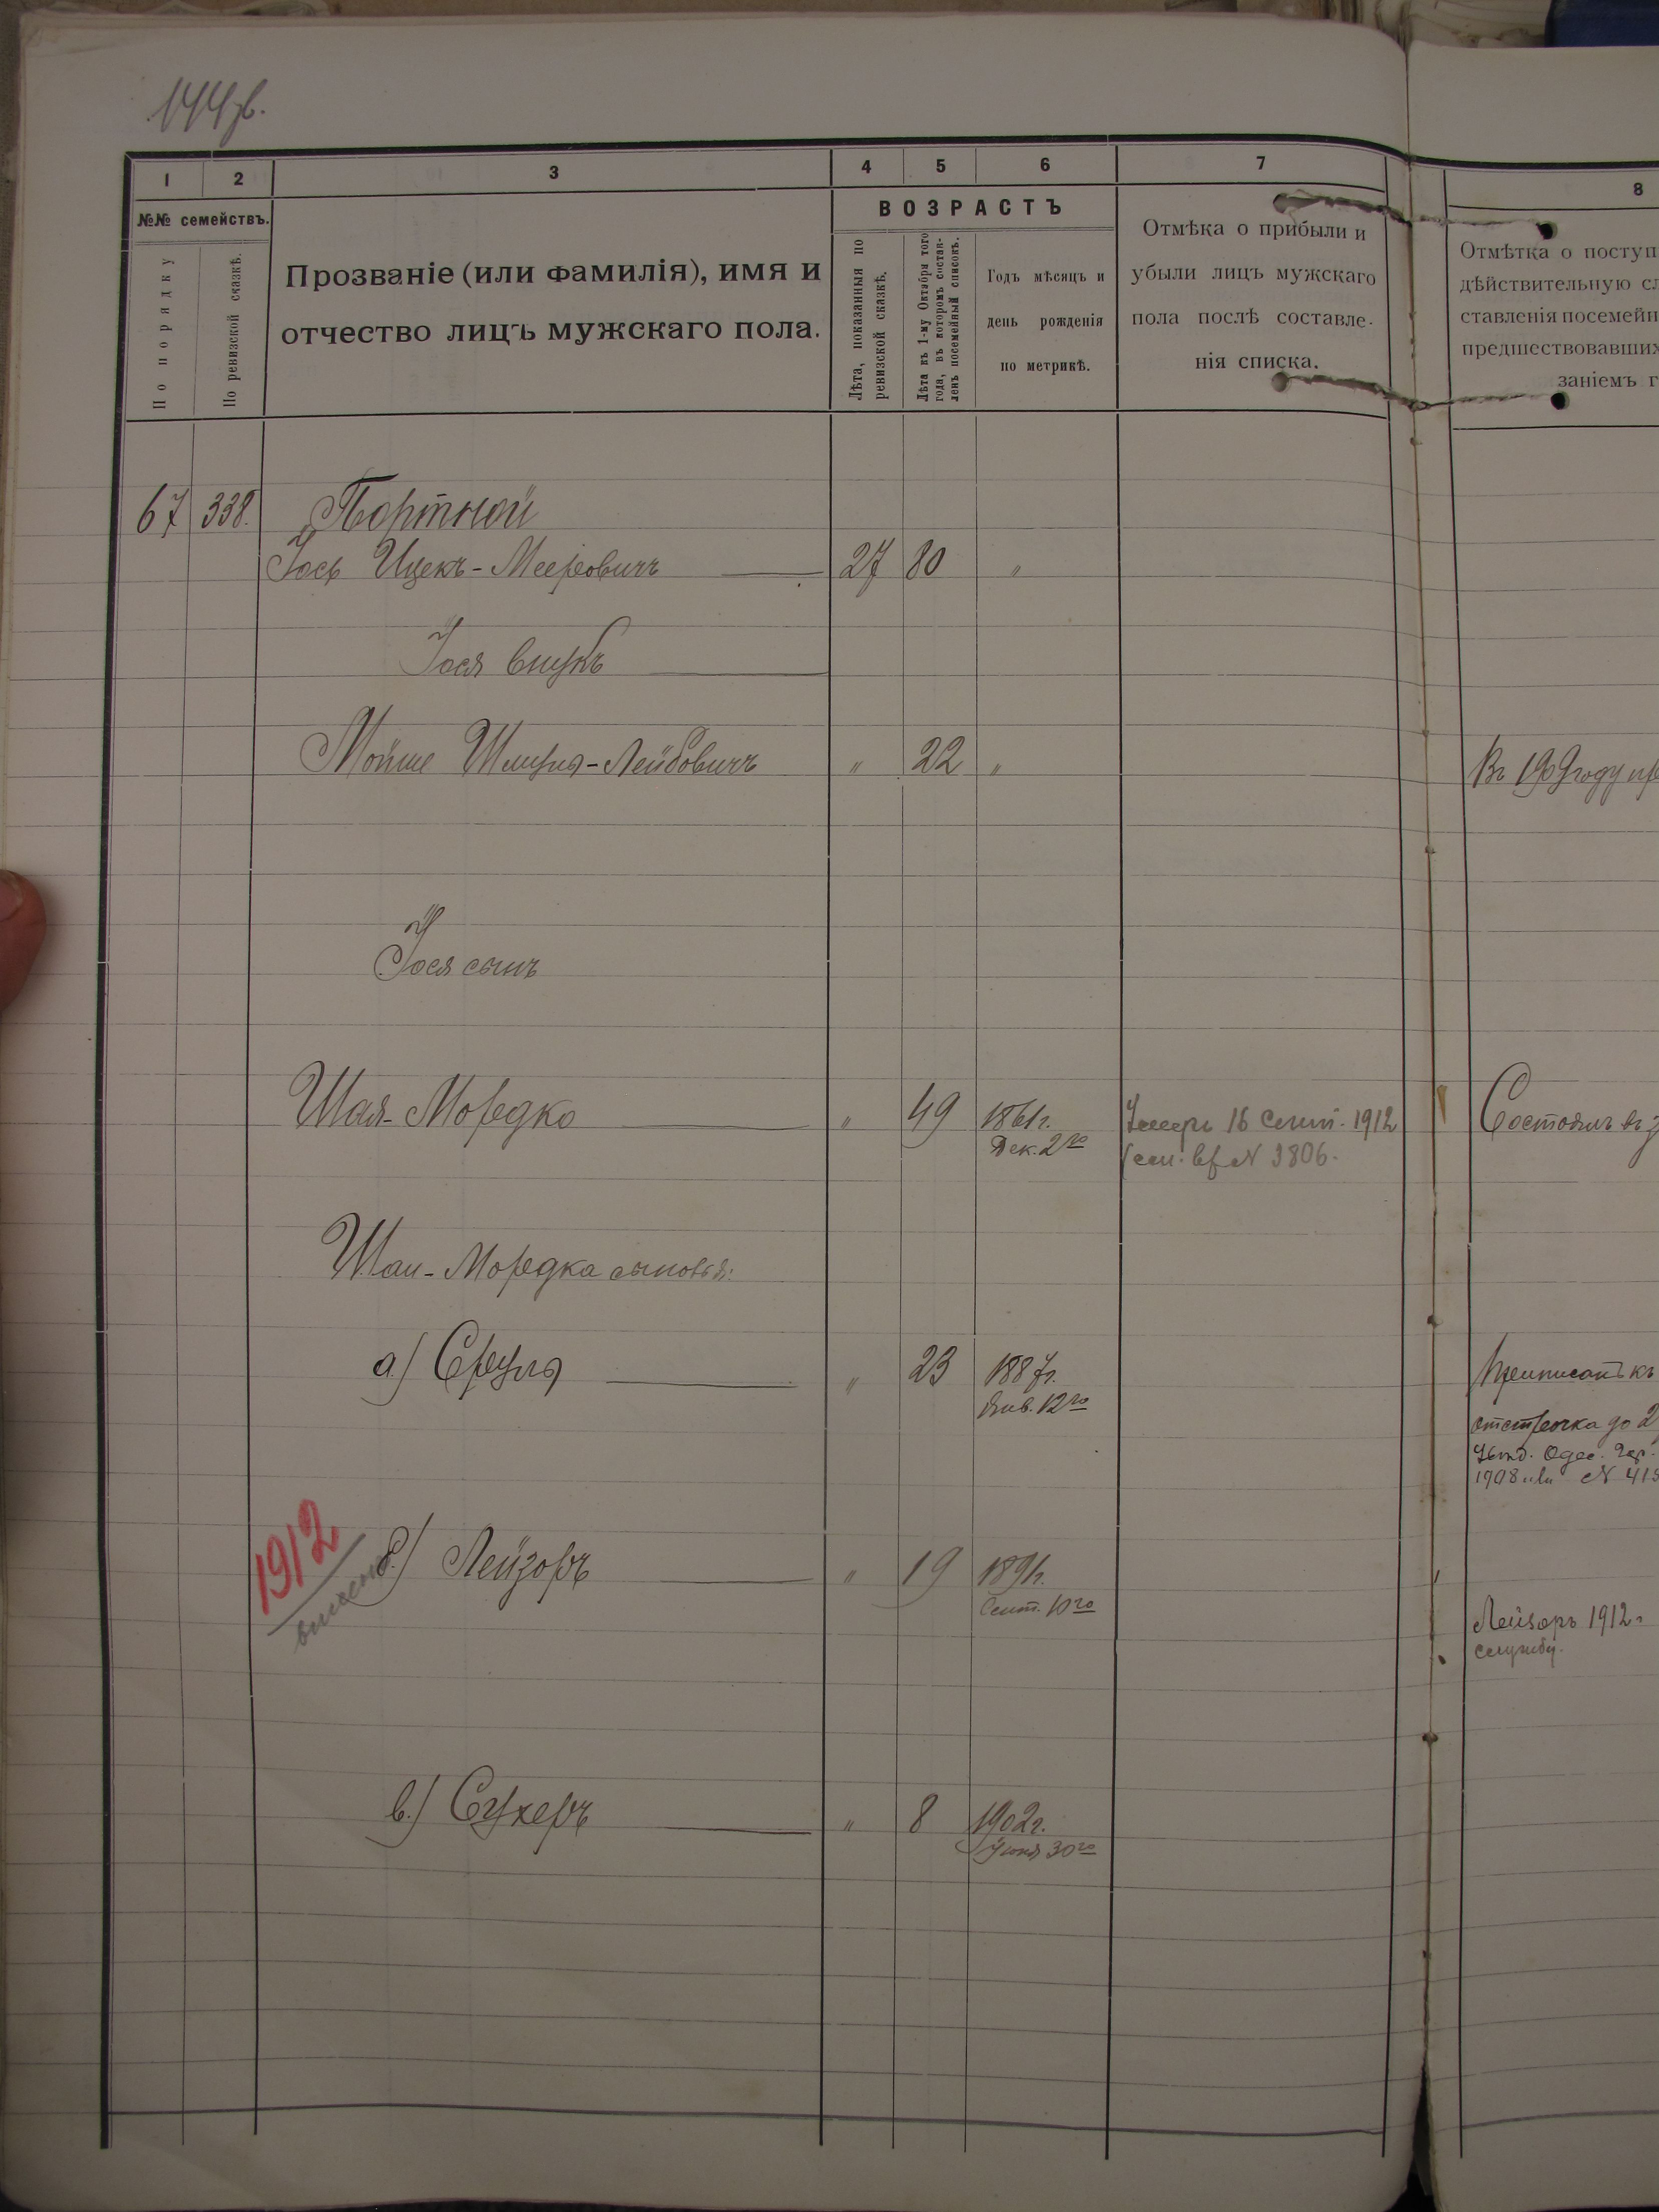 144 об.
1 2 3 4 5 6 7 8
№№ семействъ.
По порядку
По ревизской сказкѣ.
Прозваніе (или фамилія), имя и
отчество лицъ мужскаго пола.
ВОЗРАСТЪ
Лѣта, показанныя по
ревизской сказкѣ.
Лѣта къ 1-му Октября того
года, въ которомъ состав-
ленъ посемейный списокъ.
Годъ мѣсяцъ и
день рожденія
по метрикѣ.
Отмѣка о прибыли и
убыли лицъ мужскаго
пола послѣ составле-
нія списка.
Отмѣтка о поступ
дѣйствительную сл
ставленія посемейн
предшествовавших
заніемъ г
67 338. Портной
Іось Ицекъ-Мееровичъ 27 80 "
Іося внукъ
Мойше Шмуля-Лейбовичъ " 22 "
Въ 1909 году пр
Іося сынъ
Шая-Мордко " 49 1861 г.
Дек. 2го
Умеръ 16 Сент. 1912
№ 3806.
Состоялъ въ
Шаи-Мордка сыновья:
а) Сруль " 23 1887 г.
Янв. 12го
Приписанъ къ
отсрочка до 2
Одес. Гор.
1908 № 418
1912
б.) Лейзоръ " 19 1891 г.
Сент. 10го
Лейзоръ 1912 г.
службу.
в.) Сухеръ " 8 1902 г.
Іюня 30го